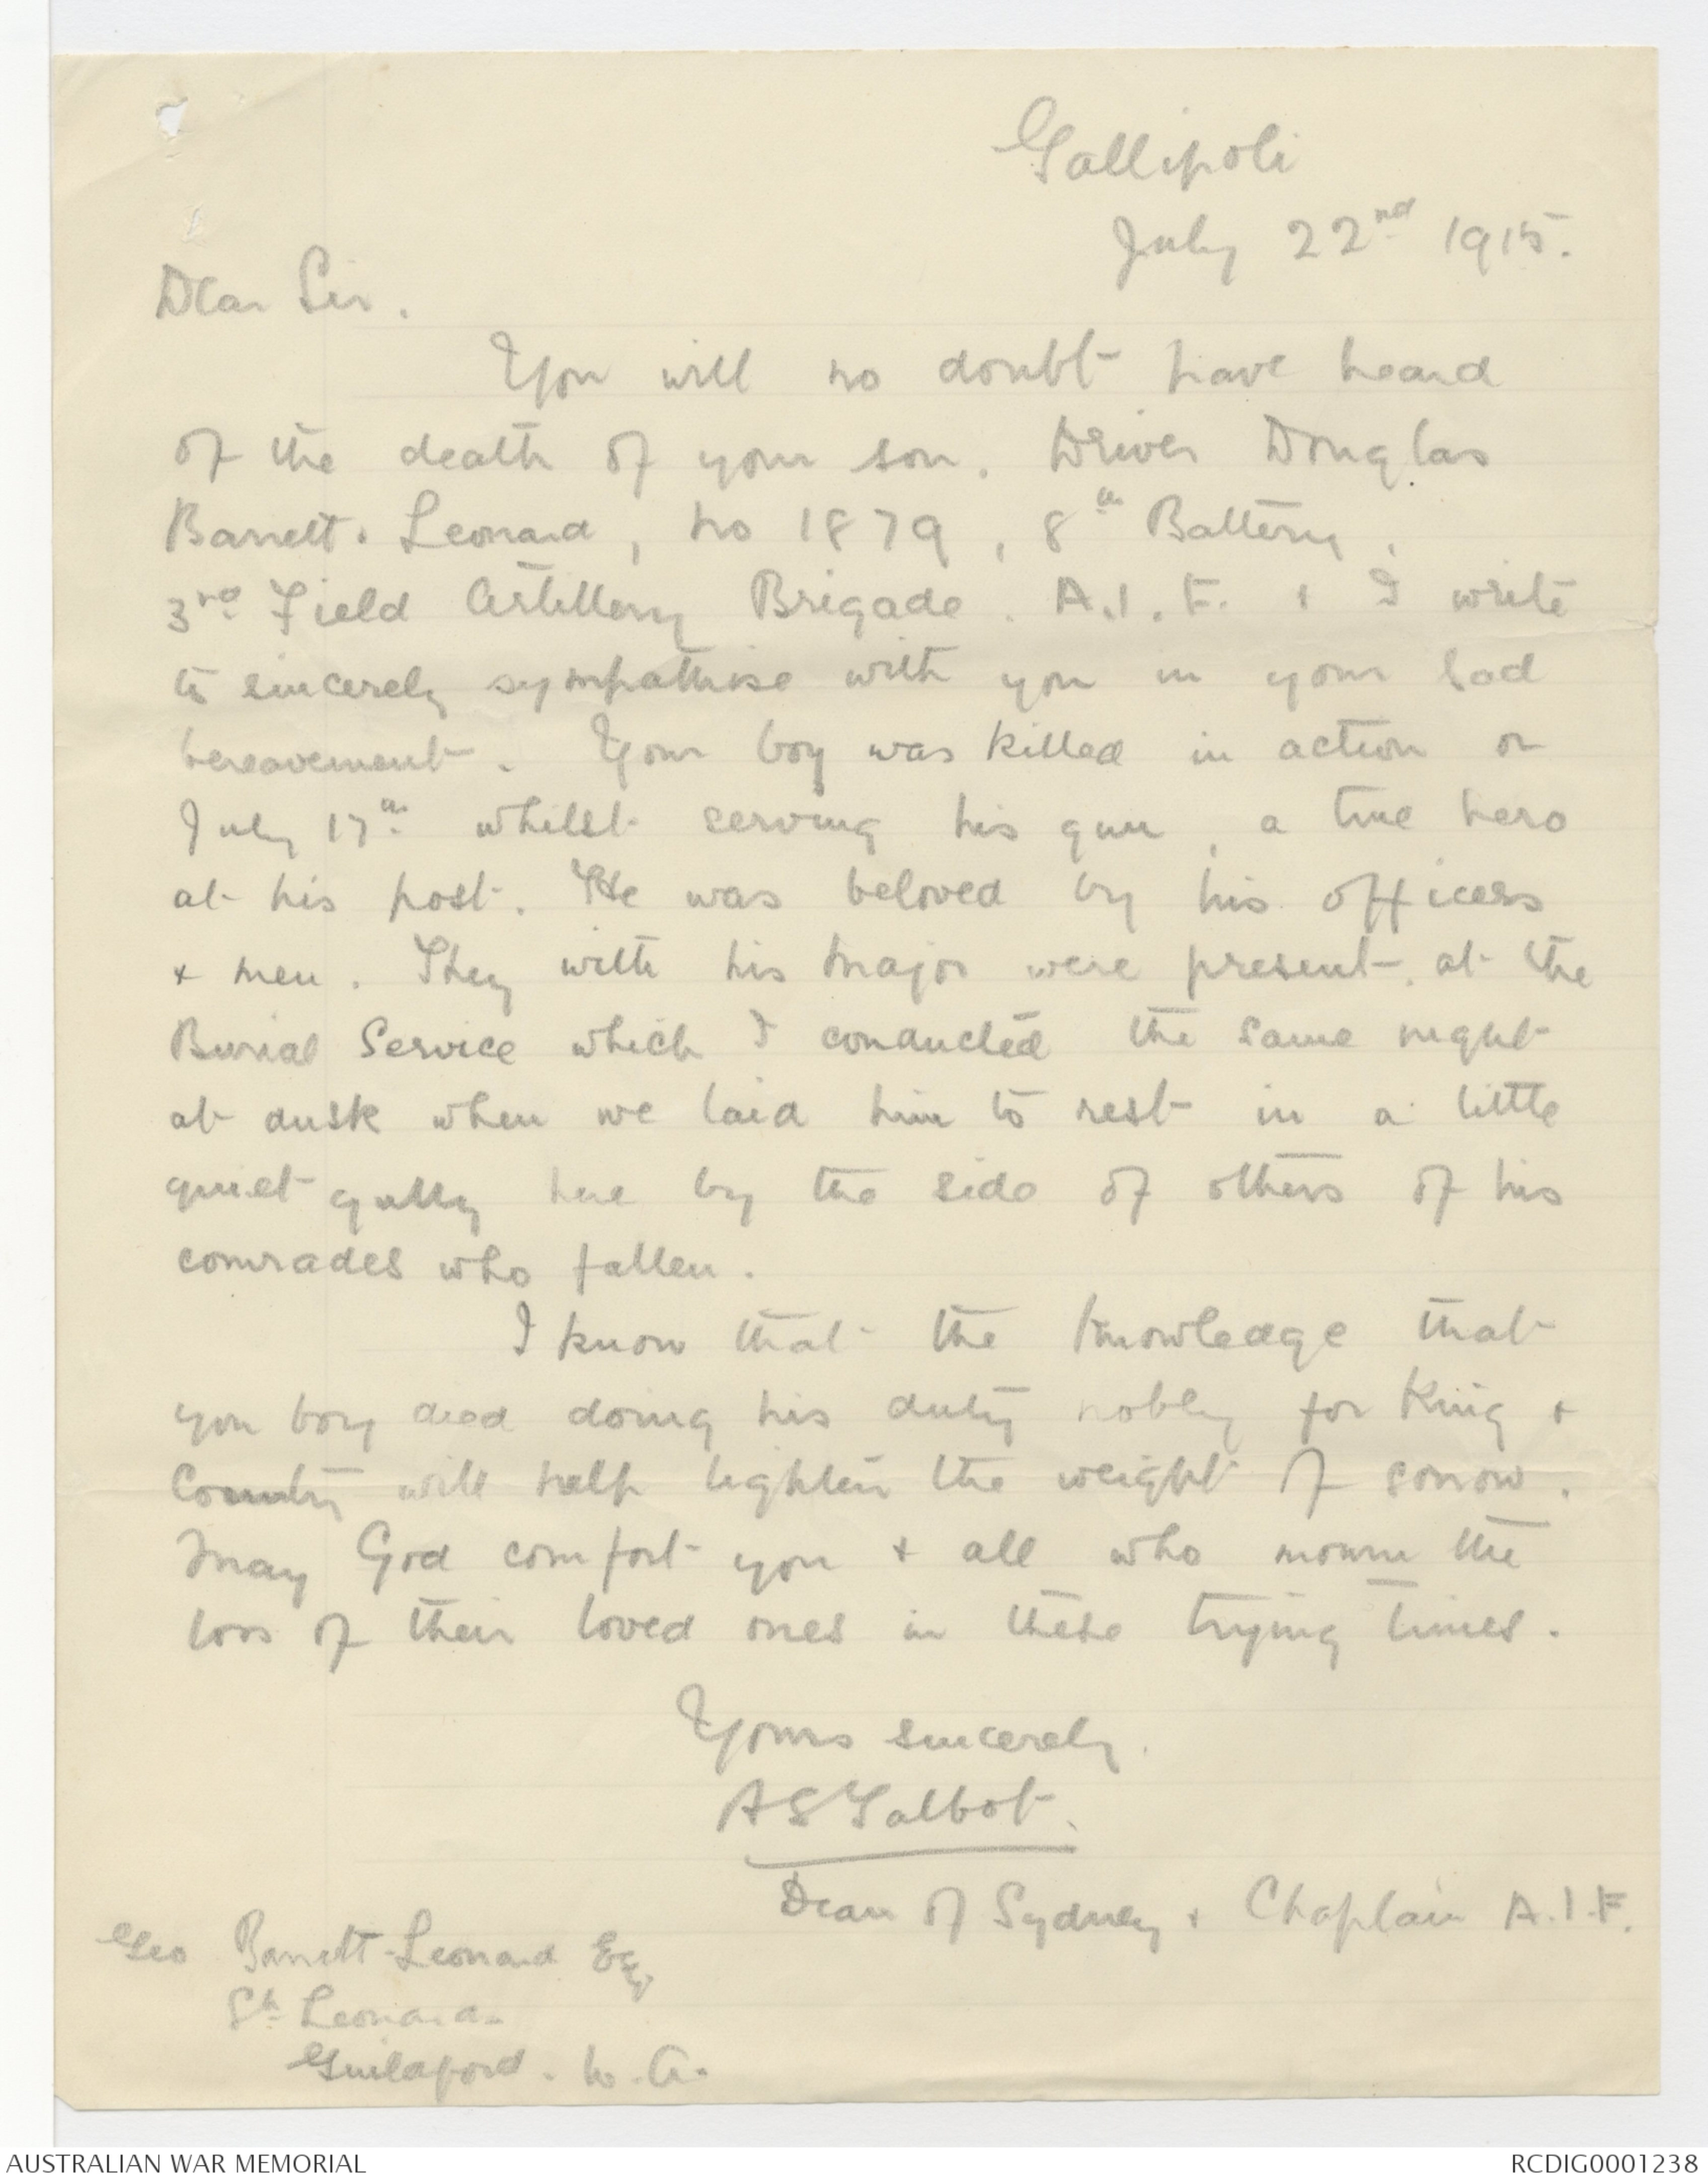 Gallipoli
July 22nd 1915.
Dear Sir.
You will no doubt have heard
of the death of your son. Driver Douglas
Barrett. Leonard, No 1879, 8th Battery,
3rd Field Artillery Brigade. A.I.F. & I write
to sincerely sympathise with you in your sad
bereavement. Your boy was killed in action on
July 17th whilst serving his gun, a true hero
at his post. He was beloved by his officers
& men. They with his Major were present, at the
Burial Service which I conducted the same night
at dusk when we laid him to rest in a little
quiet gully here by the side of others of his
comrades who fallen.
I know that the knowledge that
you boy died doing his duty nobly for King &
Country will help lighten the weight of sorrow.
May God comfort you & all who mourn the
loss of their loved ones in these trying times.
Yours sincerely.
AE Talbot.
Dean of Sydney & Chaplain A.I.F.
Geo Barrett-Leonard Esq.
St Leonards
Guildford. W.A.
AUSTRALIAN WAR MEMORIAL
RCDIG0001238